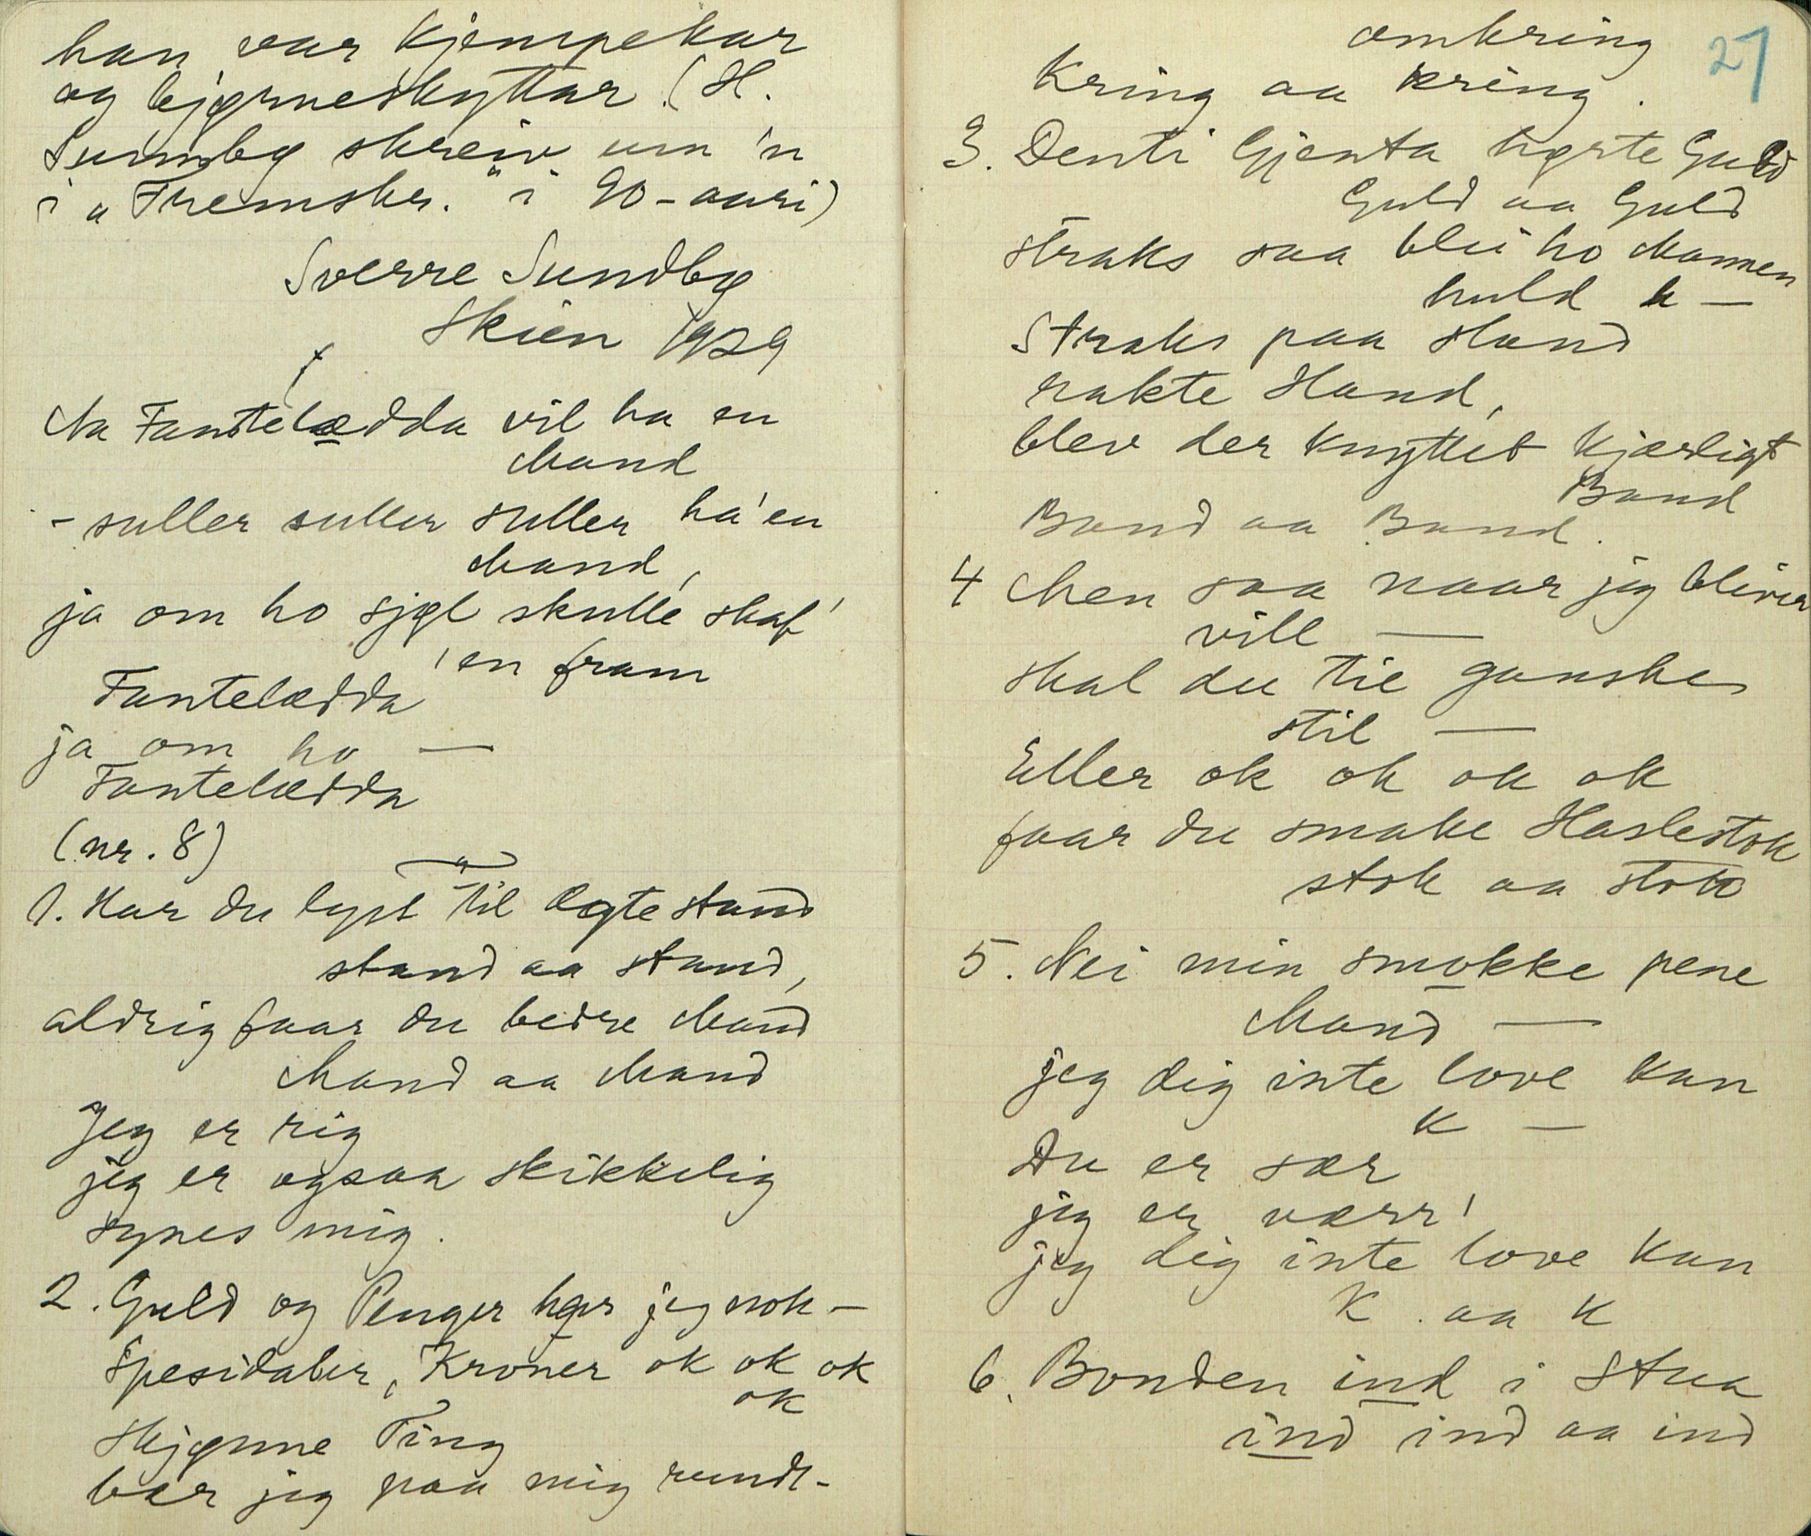 han var kjempekar
og bjørneskyttar. (H.
Sundby skreiv um 'n
i "Fremskr." i 90-aari)
Sverre Sundby
Skien 1929
Na Fantelædda vil ha en
Mand
- suller suller suller ha' en
Mand,
ja om ho sjøl skulle skaf'
'en fram
Fantelædda
ja om ho —
Fantelædda
(nr. 8)
1. Har du lyst til Ægtestand
stand aa stand,
aldrig faar du bedre Mand
Mand aa Mand
Jeg er rig
jeg er ogsaa skikkelig
synes mig.
2. Guld og Penger har jeg nok —
Spesidaler, Kroner ok ok ok
ok
Skjønne Ting
bær jeg paa mig rundt-
27
omkring
Kring aa kring.
3. Denti Gjenta hørte Guld
Guld aa Guld
straks saa blei ho Mannen
huld h —
Straks paa Stand
rakte Hand,
blev der knyttet kjærligt
Baand
Baand aa Baand.
4 Men saa naar jeg bliver
vill —
skal du tie ganske
stil —
Eller ok ok ok ok
faar du smake Haslestok
stok aa stok
5. Nei min smokke pene
Mand —
jeg dig inte love kan
k —
Du er sær
jeg er værr'
jeg dig inte love kan
K. aa K
6. Bonden ind i Stua
ind ind aa ind